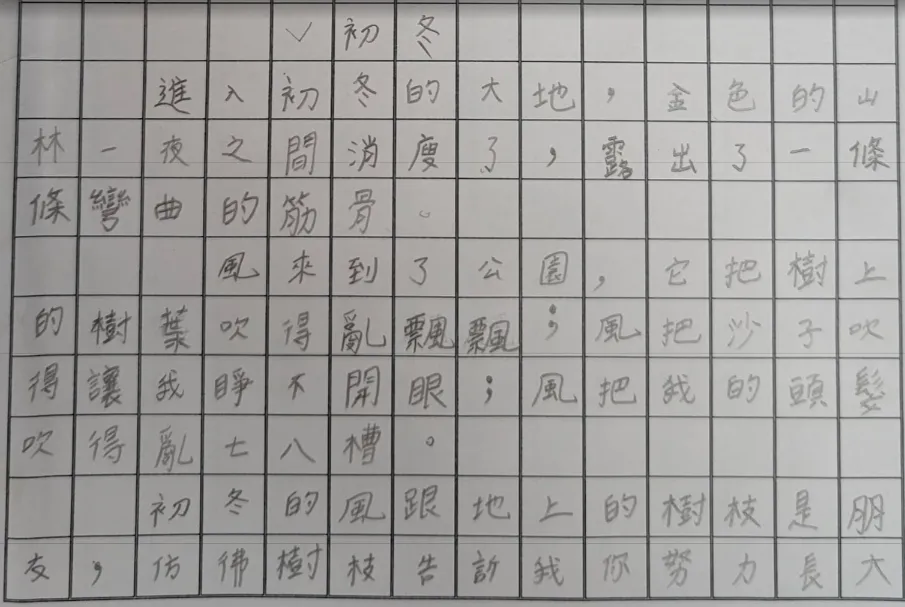 ✓初冬
進入初冬的大地，金色的山
林一夜之間消廋了，露出了一條
條彎曲的筋骨。
風來到了公園，它把樹上
的樹葉吹得亂飄飄；風把沙子吹
得讓我睜不開眼；風把我的頭髮
吹得亂七八槽。
初冬的風跟地上的樹枝是朋
友，仿彿樹枝告訴我你努力長大